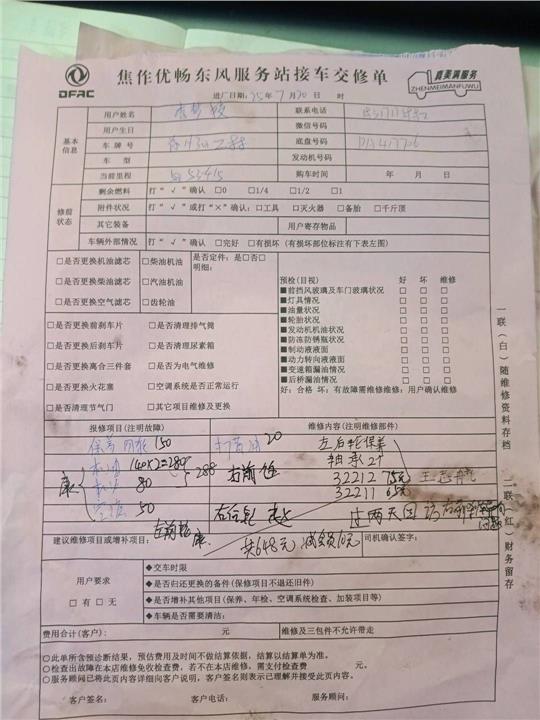 DFAC
焦作优畅东风服务站接车交修单
真美满服务
ZHENMEIMANFUWU
进厂日期:25年7月30日 时
基本信息
用户姓名 联系电话
用户生日 微信号码
车牌号 底盘号码
车型 发动机号码
当前里程 53415 购车时间 年 月 日
修前状态
剩余燃料 打“√”确认 □0 □1/4 □1/2 □1
附件状况 打“√”或打“×”确认:□工具 □灭火器 □备胎 □千斤顶
其它装备 用户寄存物品
车辆外部情况 打“√”确认 □完好 □有损坏(有损坏部位标注有下表左图)
□是否更换机油滤芯 □柴油机油 是否定件:是□否□
明细:
□是否更换柴油滤芯 □汽油机油
□是否更换空气滤芯 □齿轮油
□是否更换前刹车片 □是否清理排气筒
□是否更换后刹车片 □是否清理尿素箱
□是否更换离合三件套 □是否为电气维修
□是否更换火花塞 □空调系统是否正常运行
□是否清理节气门 □其它项目维修及更换
预检(目视) 好 坏 维修
■前挡风玻璃及车门玻璃状况 □ □ □
■灯具情况 □ □ □
■油量状况 □ □ □
■轮胎状况 □ □ □
■发动机机油状况 □ □ □
■防冻防锈瓶状况 □ □ □
■制动液液面 □ □ □
■动力转向液液面 □ □ □
■变速箱漏油情况 □ □ □
■后桥漏油情况 □ □ □
好:合格 坏:有故障需维修维修:用户确认维修
报修项目(注明故障) 维修内容(注明维修部件)
保养 150 打黄油 20 左后轮保养
机油 140×2=280 288 右前 轴承2个
机 80 32212 75元
32211 65元
空 50 右后轮 过两天回
建议维修项目或增补项目: 共648元 司机确认签字:
用户要求
□有 □无
◆交车时限
◆是否归还更换的备件(保修项目不退还旧件)
◆是否增补其他项目(保养、年检、空调系统检查、加装项目等)
◆车辆是否需要清洁:
费用合计(客户): 元 维修及三包件不允许带走
○此单所含预诊断结果,预估费用及时间不做结算依据,结算以结算单为准。
○检查出故障在本店维修免收检查费,若不在本店维修,需支付检查费 元。
○服务顾问已将此页内容详细向客户说明,客户签名则表示已理解并接受此页内容。
客户签名: 客户电话: 服务顾问:
一联(白)随维修资料存档 二联(红)财务留存